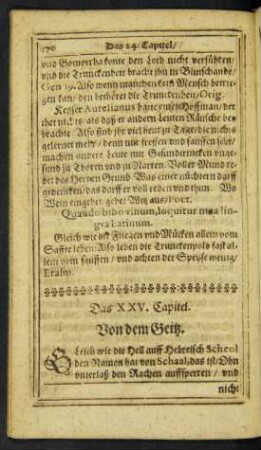 170 Das 24. Capitel/
und Gomorrha konte den Loth nicht verführen/
und die Trunckenheit bracht ihn in Blutschande/
Gen 19. Also wenn manchen kein Mensch betrie-
gen kan/ den bethöret die Trunckenheit/ Orig.
Keyser Aurelianus hatte einen Hoffman/ der
thet nichts/ als daß er andern Leuten Räusche bey-
brachte Also sind ihr viel heut zu Tage/ die nichts
gelernet mehr/ denn nur fressen und sauffen jehr/
machen andere Leute mit Gesundtrincken unge-
sund zu Thoren und zu Narren. Voller Mund re-
det des Hertzen Grund Was einer nüchtern darff
gedencken/ das darff er voll reden und thun. Wo
Wein eingehet gehet Witz aus/ Poet.
Quando bibo vinum, loquitur mea lin-
gva Latinum.
Gleich wie die Fliegen und Mücken allein vom
Saffte leben Also leben die Trunckenpolß fast al-
lein vom sauffen/ und achten der Speyse wenig/
Erasm.
Das XXV. Capitel.
Von dem Geitz.
Gleich wie die Hell auff Hebreisch Scheol
den Namen hat von Schaal, das ist/ Ohn
unterlaß den Rachen auffsperren/ und
nicht